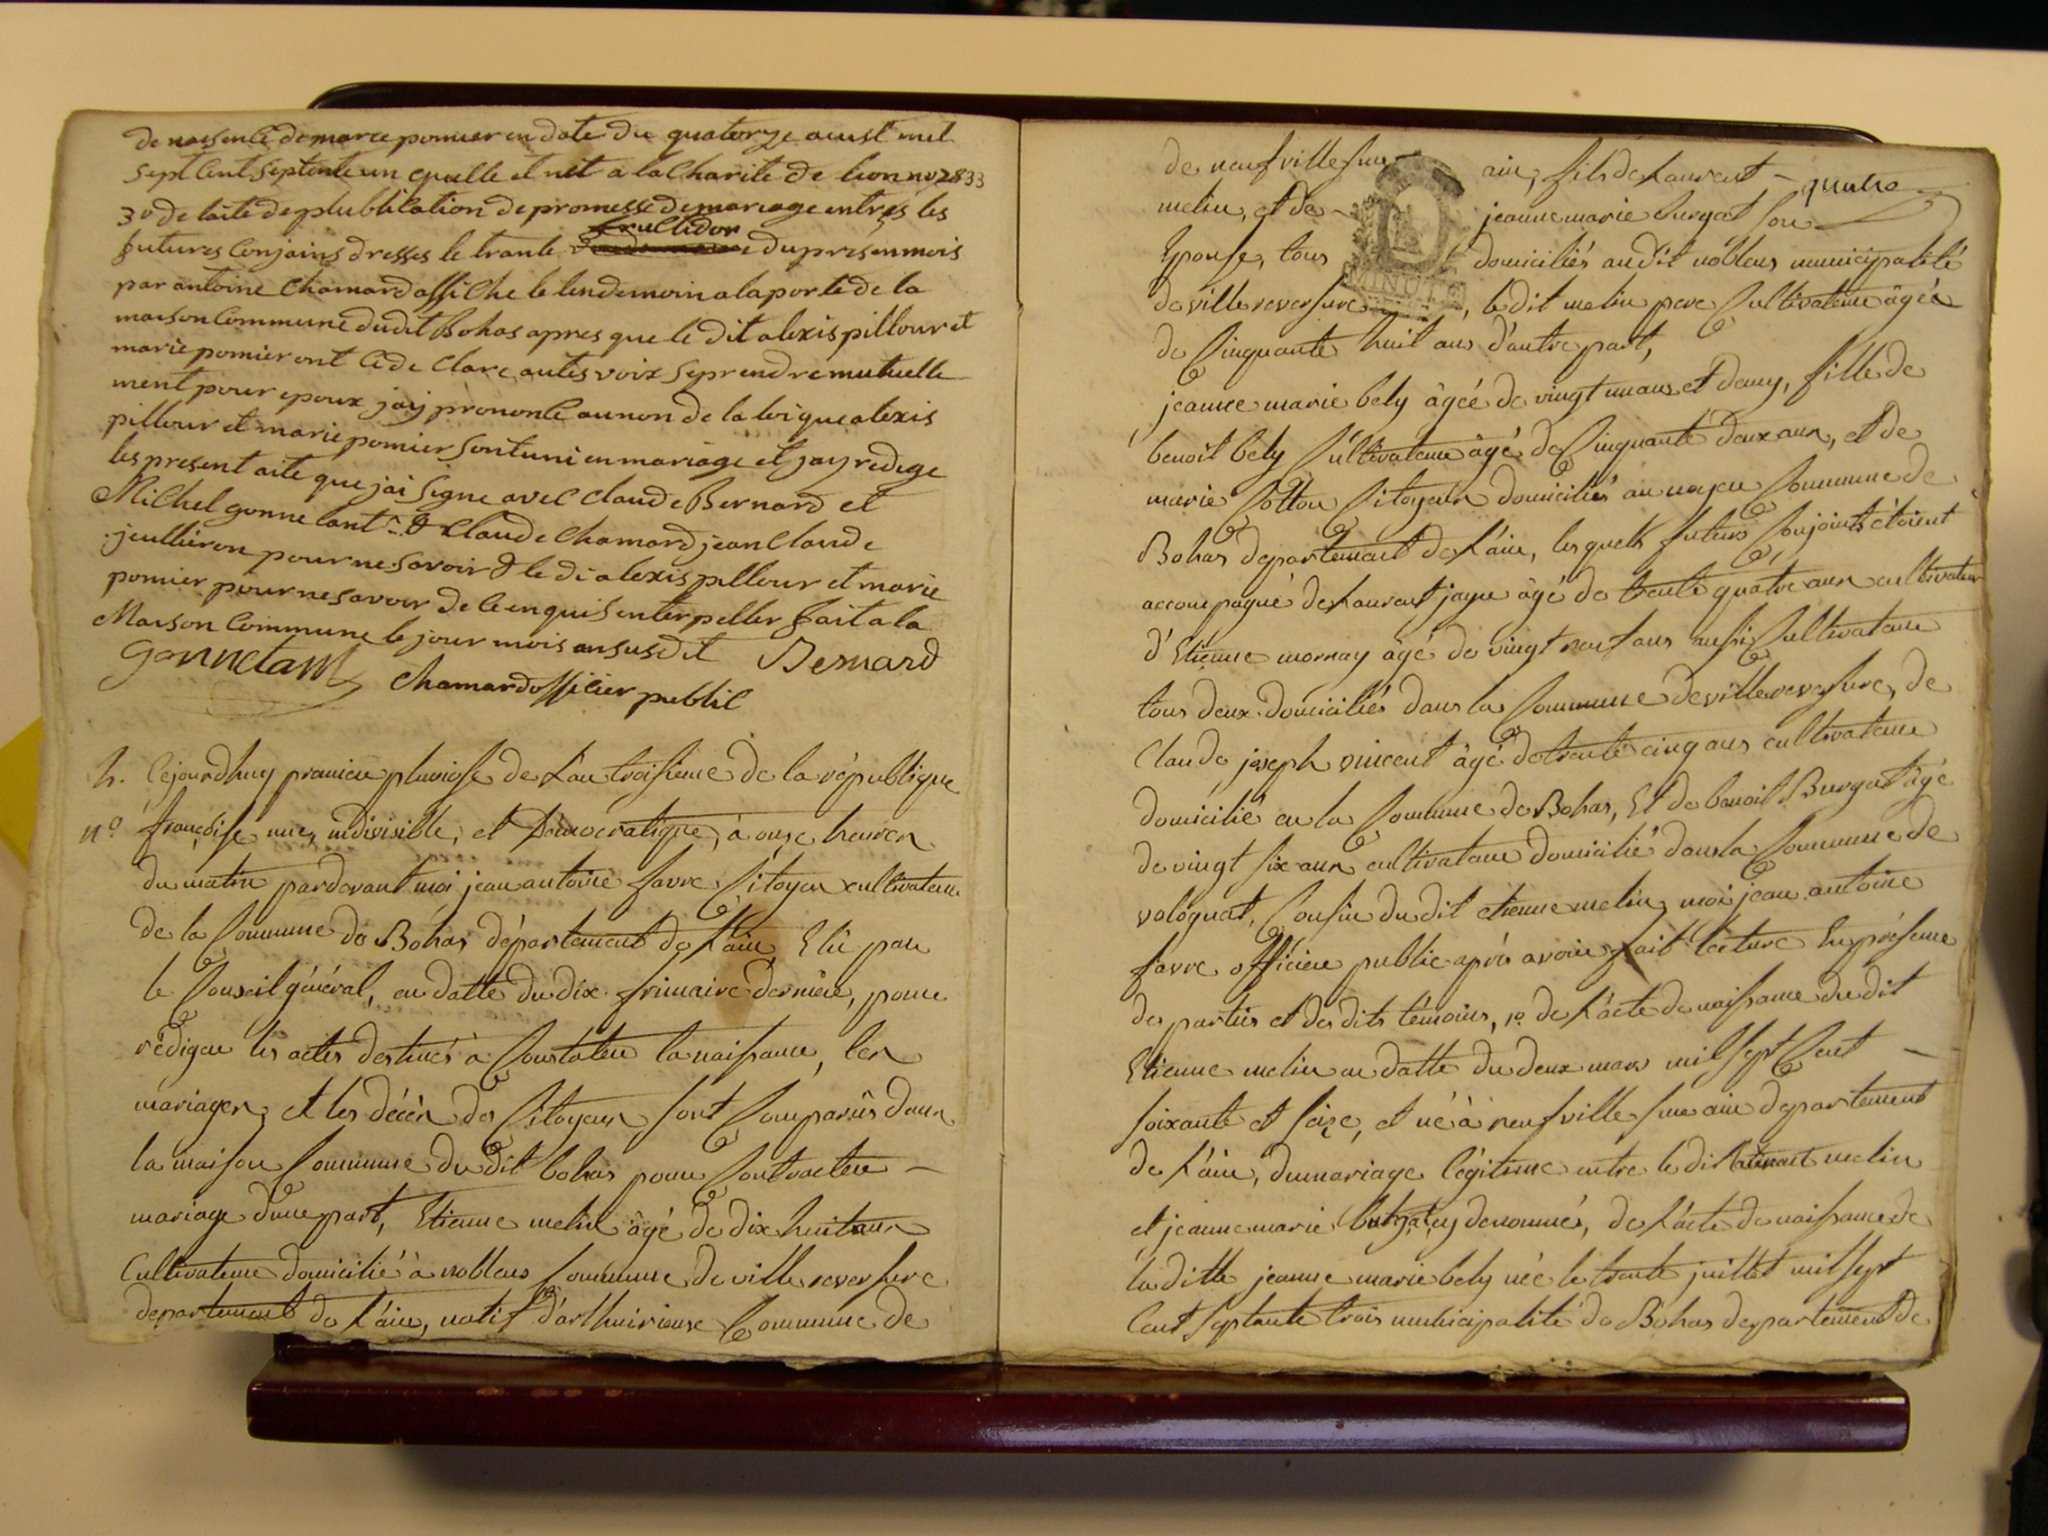 de naisence de marie pomier en date du quatorze aoust mil
sept cent septente un equelle et net a la Charité de lion no 2833
3o de lacte de plublication de promesse de mariage entre les
fructidor
futures conjoins dresses le trante du presen mois
par antoine Chamard affiche le lendemoin a la porte de la
maison commune dudit Bohas apres que le dit alexis pillour et
marie pomier ont cidé clare autes voix se prendre mutuelle
ment pour epoux jaij prononcé aunon de la loi que alexis
pillour et marie pomier sont uni en mariage et jay redege
les present acte que jai signe avec Claude Bernard et
Michel gonnetant & Claude Chamard jean Claude
jeullieron pour ne savoir & le di alexis pillour et marie
pomier pour ne savoir de ce enquis enterpeller fait a la
Maison Commune le jour mois an susdit
Gonnetant Bernard
Chamard officier public
h. Cejourdhuy premier pluviose de L'an troisieme de la république
no françoise une, indivisible, et Démocratique, à onze heures
du matin pardevant moi jean antoine favre Citoyen cultivateur
de la Commune de Bohas département de L'ain, Elû par
le Conseil général, en datte du dix frimaire dernier, pour
rédiger les actes destinés à Constater la naissance, les
mariages, et les décès des Citoyens sont Comparûs dans
la maison Commune du dit bohas pour Contracter –
mariage d'une part, Etienne melin âgé de dix huit ans
Cultivateur domicilié à noblens Commune de villereversure
departement de L'ain, natif d'arthuirieux Commune de
de neufville sur ain, fils de Laurent – quatre
melin, et de – jeanne marie Burgat son
Epouse, tous domiciliés audit noblens municipalité
MINUTE
de villereversure, le dit melin pere Cultivateur âgée
de Cinquante huit ans d'autre part,
jeanne marie bely âgée de vingt un ans et demy, fille de
benoit bely Cultivateur âgé de Cinquante deux ans, et de
marie Cotton Citoyens domiciliés au noyer Commune de
Bohas departement de L'ain, lesquels futurs Conjoints étoient
accompagné de Laurent jayr âgé de trente quatre ans cultivateur
d'Etienne mornay âgé de vingt neuf ans aussi Cultivateur
tous deux domiciliés dans la Commune de villereversure, de
Claude joseph vincent âgé de trente cinq ans cultivateur
domicilié en la Commune de Bohas, Et de benoit Burgat âgé
de vingt six ans cultivateur domicilié dans la Commune de
volognat, Cousin du dit etienne melin, moi jean antoine
favre officier public après avoir fait lecture En présence
des parties et des dits témoins, 1o. de L'acte de naissance du dit
Etienne melin en datte du deux mars mil sept Cent –
soixante et seize, et né à neufville sur ain departement
de L'ain, du mariage légitime entre le dit Laurent melin
et jeanne marie denommés, de L'acte de naissance de
la ditte jeanne marie bely née le trente juillet mil sept
Cent septante trois municipalité de Bohas departement de